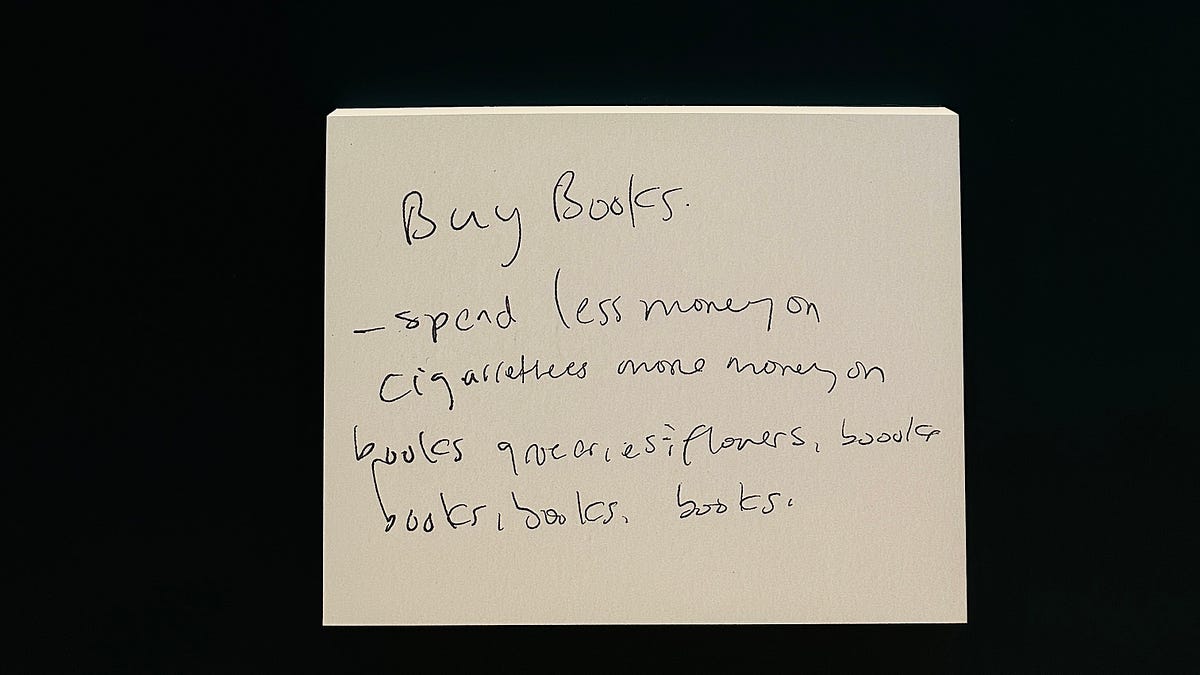 Buy Books.
– spend less money on
cigarrettees more money on
books groceries + flowers, boooks
books, books, books.